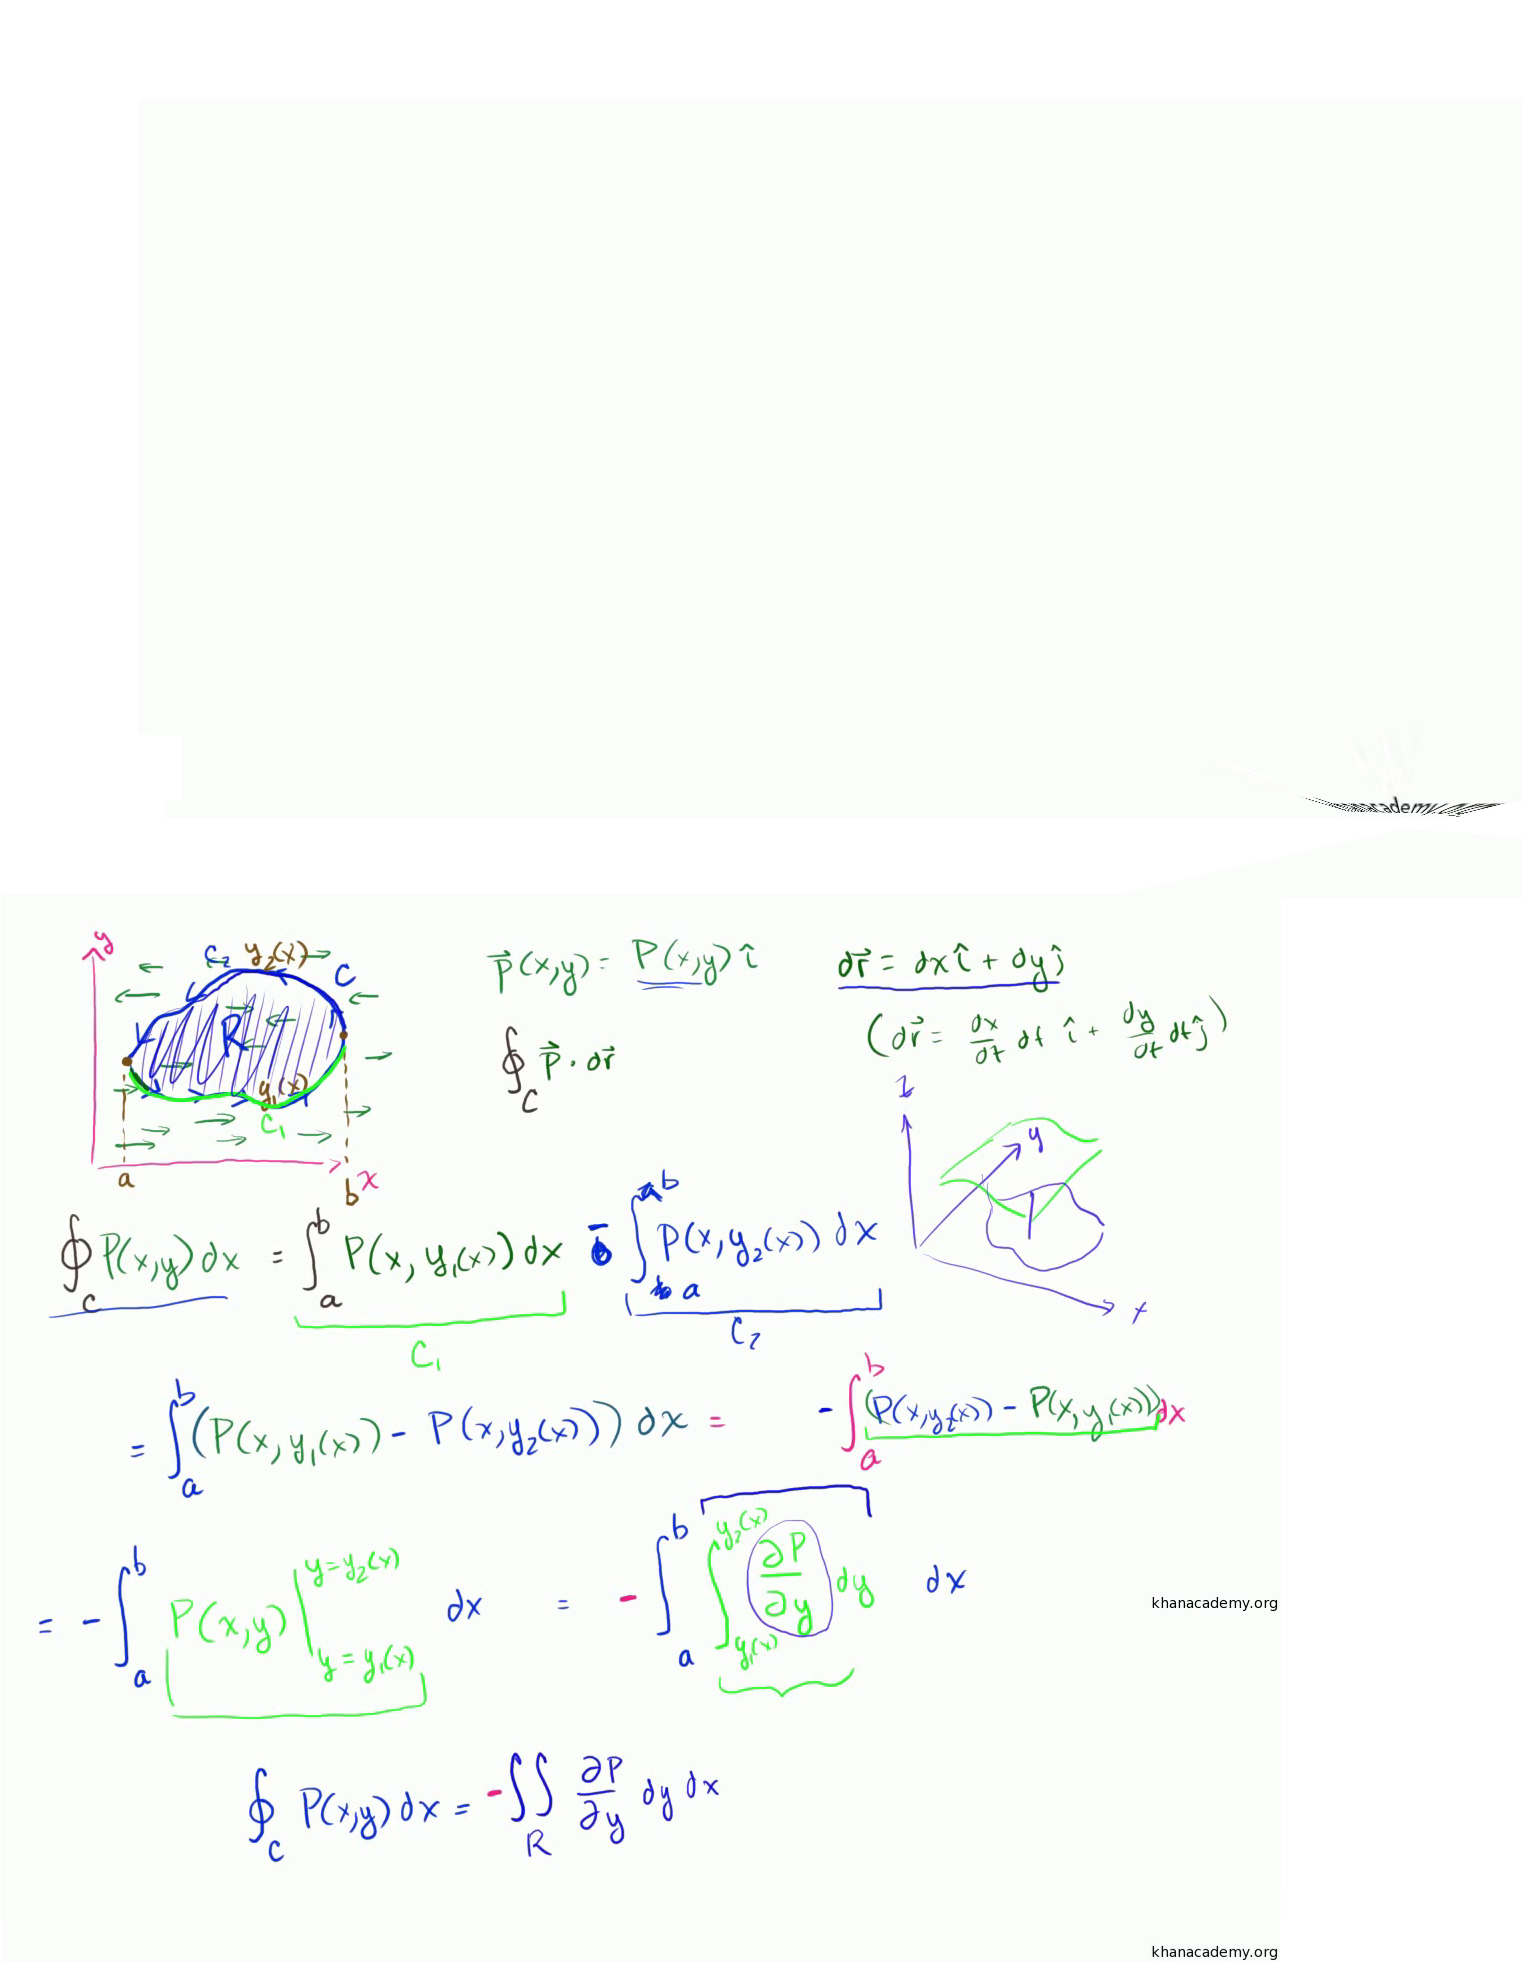 ademy
y
C₂ y₂(x)
C
R
y₁(x)
C₁
a
b
x
p⃗(x,y) = P(x,y) î
dr⃗ = dx î + dy ĵ
(dr⃗ = dx/dt dt î + dy/dt dt ĵ)
∮_C p⃗ · dr⃗
z
y
x
∮_C P(x,y) dx = ∫_a^b P(x, y₁(x)) dx - ∫_a^b P(x, y₂(x)) dx
C₁
C₂
= ∫_a^b (P(x, y₁(x)) - P(x, y₂(x))) dx = - ∫_a^b (P(x, y₂(x)) - P(x, y₁(x))) dx
= - ∫_a^b P(x,y) |_{y = y₁(x)}^{y = y₂(x)} dx = - ∫_a^b ∫_{y₁(x)}^{y₂(x)} ∂P/∂y dy dx
khanacademy.org
∮_C P(x,y) dx = - ∬_R ∂P/∂y dy dx
khanacademy.org